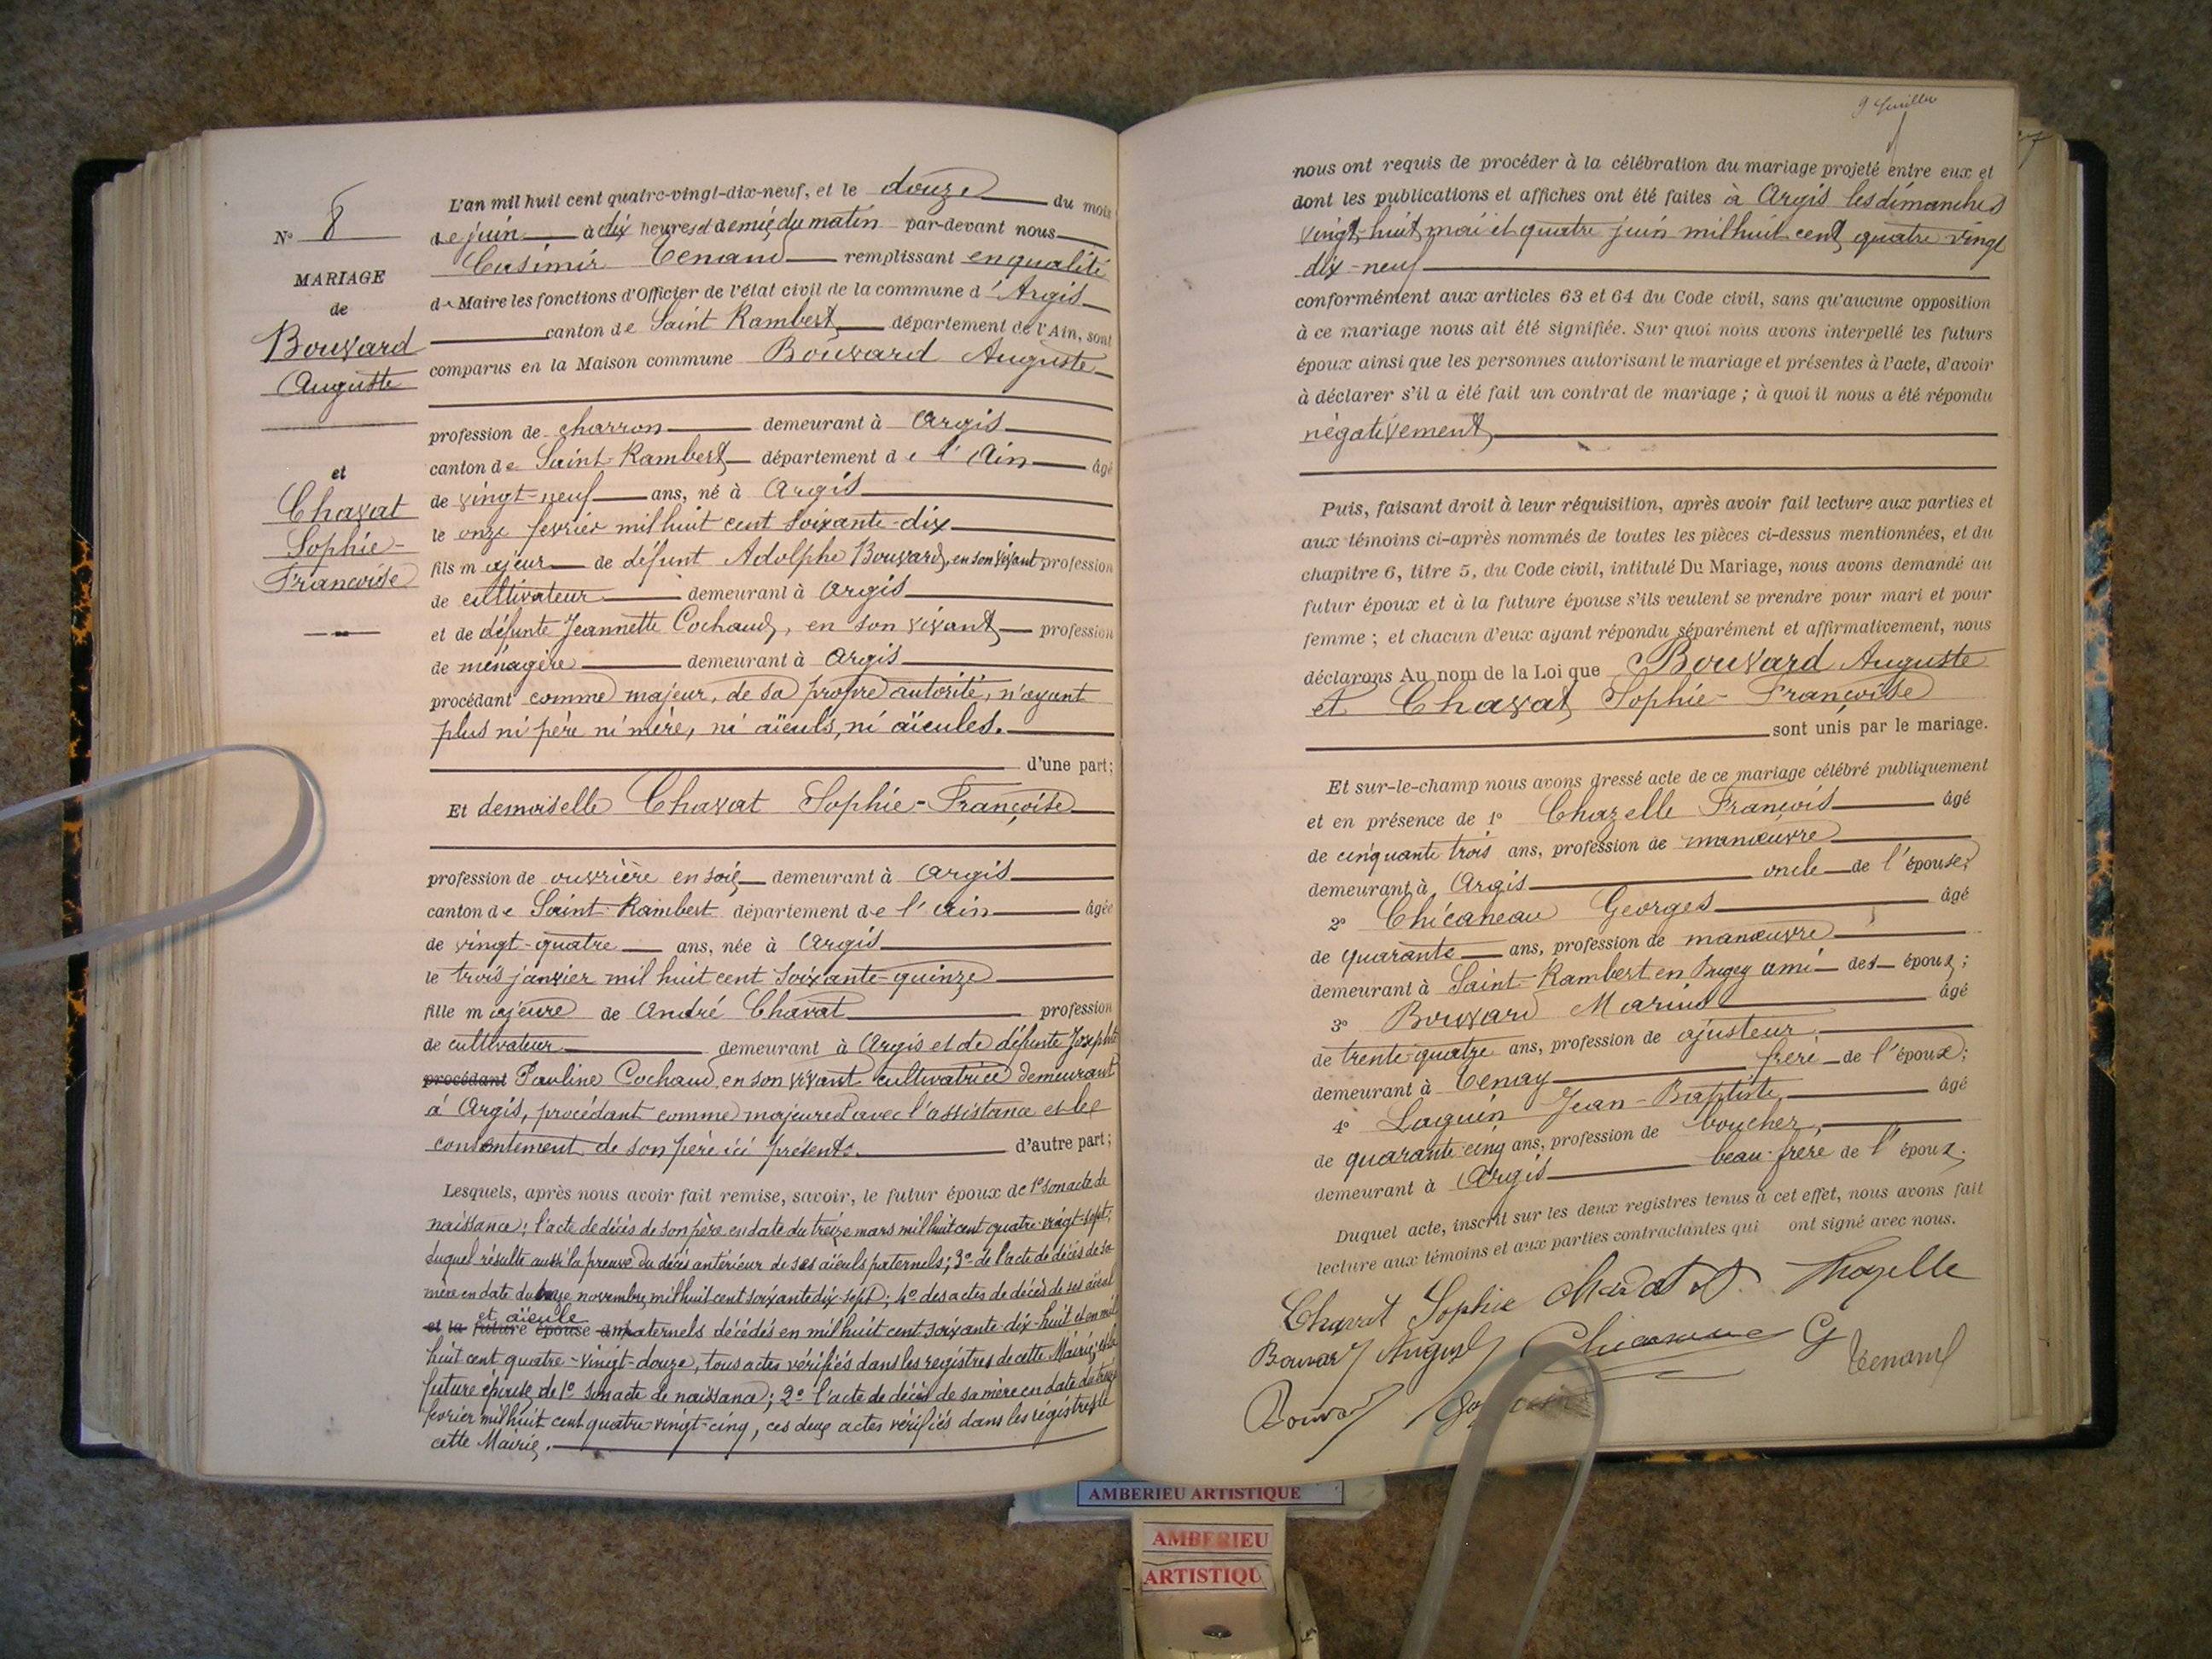 N° 8
MARIAGE
de
Bouvard
Auguste
et
Chavat
Sophie-
Françoise
L'an mil huit cent quatre-vingt-dix-neuf, et le douze du mois
de juin à dix heures et demie du matin par-devant nous
Casimir Tenand remplissant en qualité
de Maire les fonctions d'Officier de l'état civil de la commune d'Argis
canton de Saint Rambert département de l'Ain, sont
comparus en la Maison commune Bouvard Auguste
profession de charron demeurant à Argis
canton de Saint-Rambert département de l'Ain âgé
de vingt-neuf ans, né à Argis
le onze fevrier mil huit cent soixante-dix
fils majeur de défunt Adolphe Bouvard, en son vivant profession
de cultivateur demeurant à Argis
et de défunte Jeannette Cochaud, en son vivant profession
de ménagère demeurant à Argis
procédant comme majeur, de sa propre autorité, n'ayant
plus ni père ni mère, ni aïeuls, ni aïeules.
d'une part;
Et demoiselle Chavat Sophie-Françoise
profession de ouvrière en soie demeurant à Argis
canton de Saint-Rambert département de l'Ain âgée
de vingt-quatre ans, née à Argis
le trois janvier mil huit cent soixante-quinze
fille majeure de André Chavat profession
de cultivateur demeurant à Argis et de défunte Josephte
procédant Pauline Cochaud en son vivant cultivatrice demeurant
à Argis, procédant comme majeure et avec l'assistance et le
consentement de son père ici présent. d'autre part;
Lesquels, après nous avoir fait remise, savoir, le futur époux de 1° son acte de
naissance; l'acte de décès de son père en date du treize mars mil huit cent quatre-vingt-sept,
duquel résulte aussi la preuve du décès antérieur de ses aïeuls paternels; 3° de l'acte de décès de sa
mère en date du onze novembre mil huit cent soixante dix-sept; 4° des actes de décès de ses aïeul
et aïeule
et la future épouse maternels décédés en mil huit cent soixante-dix-huit et en mil
huit cent quatre-vingt-douze, tous actes vérifiés dans les registres de cette Mairie; et la
future épouse de 1° son acte de naissance; 2° l'acte de décès de sa mère en date du
fevrier mil huit cent quatre-vingt-cinq, ces deux actes vérifiés dans les régistres de
cette Mairie.
nous ont requis de procéder à la célébration du mariage projeté entre eux et
dont les publications et affiches ont été faites à Argis les dimanches
vingt-huit mai et quatre juin mil huit cent quatre-vingt
dix-neuf
conformément aux articles 63 et 64 du Code civil, sans qu'aucune opposition
à ce mariage nous ait été signifiée. Sur quoi nous avons interpellé les futurs
époux ainsi que les personnes autorisant le mariage et présentes à l'acte, d'avoir
à déclarer s'il a été fait un contrat de mariage; à quoi il nous a été répondu
négativement
Puis, faisant droit à leur réquisition, après avoir fait lecture aux parties et
aux témoins ci-après nommés de toutes les pièces ci-dessus mentionnées, et du
chapitre 6, titre 5, du Code civil, intitulé Du Mariage, nous avons demandé au
futur époux et à la future épouse s'ils veulent se prendre pour mari et pour
femme; et chacun d'eux ayant répondu séparément et affirmativement, nous
déclarons Au nom de la Loi que Bouvard Auguste
et Chavat Sophie-Françoise
sont unis par le mariage.
Et sur-le-champ nous avons dressé acte de ce mariage célébré publiquement
et en présence de 1° Chazelle François âgé
de cinquante trois ans, profession de manœuvre
demeurant à Argis oncle de l'épouse;
2° Chicaneau Georges âgé
de quarante ans, profession de manœuvre
demeurant à Saint-Rambert en Bugey ami des époux;
3° Bouvard Marius âgé
de trente-quatre ans, profession de ajusteur
demeurant à Tenay frère de l'époux;
4° Laguin Jean-Baptiste âgé
de quarante-cinq ans, profession de boucher,
demeurant à Argis beau-frère de l'époux.
Duquel acte, inscrit sur les deux registres tenus à cet effet, nous avons fait
lecture aux témoins et aux parties contractantes qui ont signé avec nous.
Chavat Sophie Chavat Chazelle
Bouvard August Chicaneau G Tenand
Bouvard
AMBERIEU ARTISTIQUE
AMBERIEU
ARTISTIQU